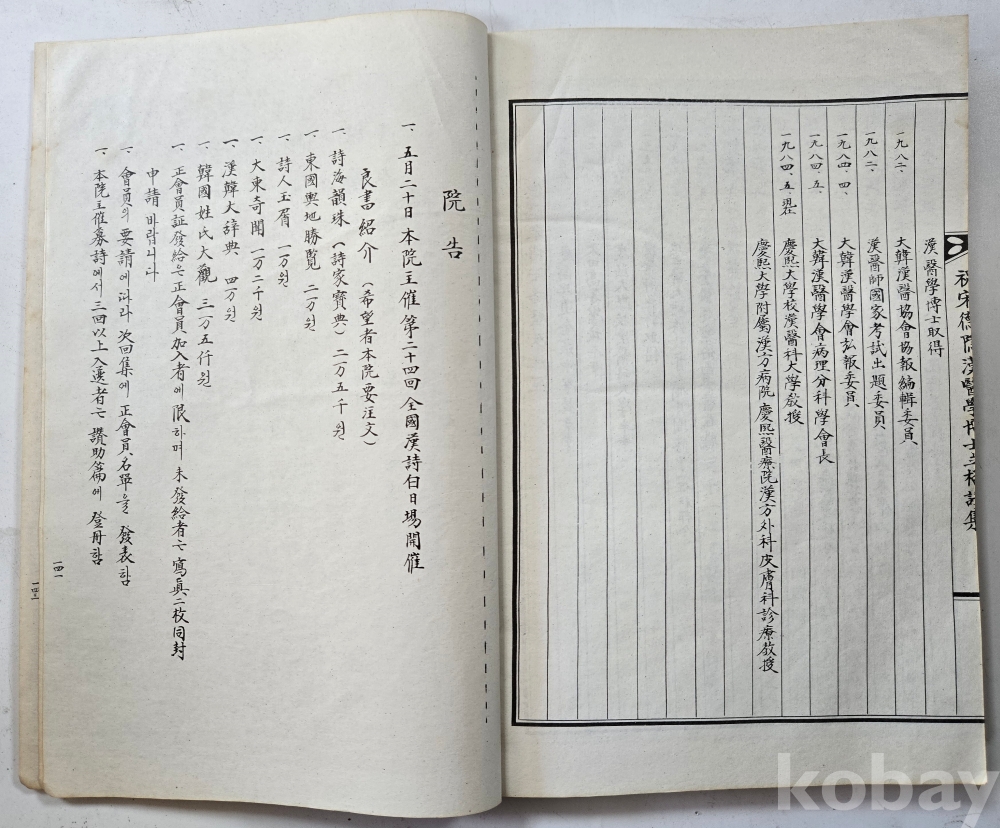 漢醫學博士取得
一九八二、 大韓漢醫協會協報編輯委員
一九八二、 漢醫師國家考試出題委員
一九八四、四、 大韓漢醫學會弘報委員
一九八四、五、 大韓漢醫學會病理分科學會長
一九八四、五、現在 慶熙大學校漢醫科大學敎授
慶熙大學附屬漢方病院 慶熙醫療院漢方外科皮膚科診療敎授
院告
一、五月二十日本院主催第二十四回全國漢詩白日場開催
良書紹介 (希望者本院要注文)
一、詩海韻珠 (詩家寶典) 二万五千원
一、東國輿地勝覧 二万원
一、詩人玉屑 一万원
一、大東奇聞 一万二千원
一、漢韓大辞典 四万원
一、韓國姓氏大觀 三万五仟원
一、正會員証發給은正會員加入者에限하며未發給者는寫眞二枚同封
申請바랍니다
一、會員의要請에따라次回集에正會員名單을發表함
一、本院主催募詩에서三回以上入選者는讃助篇에登冊함
一四一
一四二
kobay